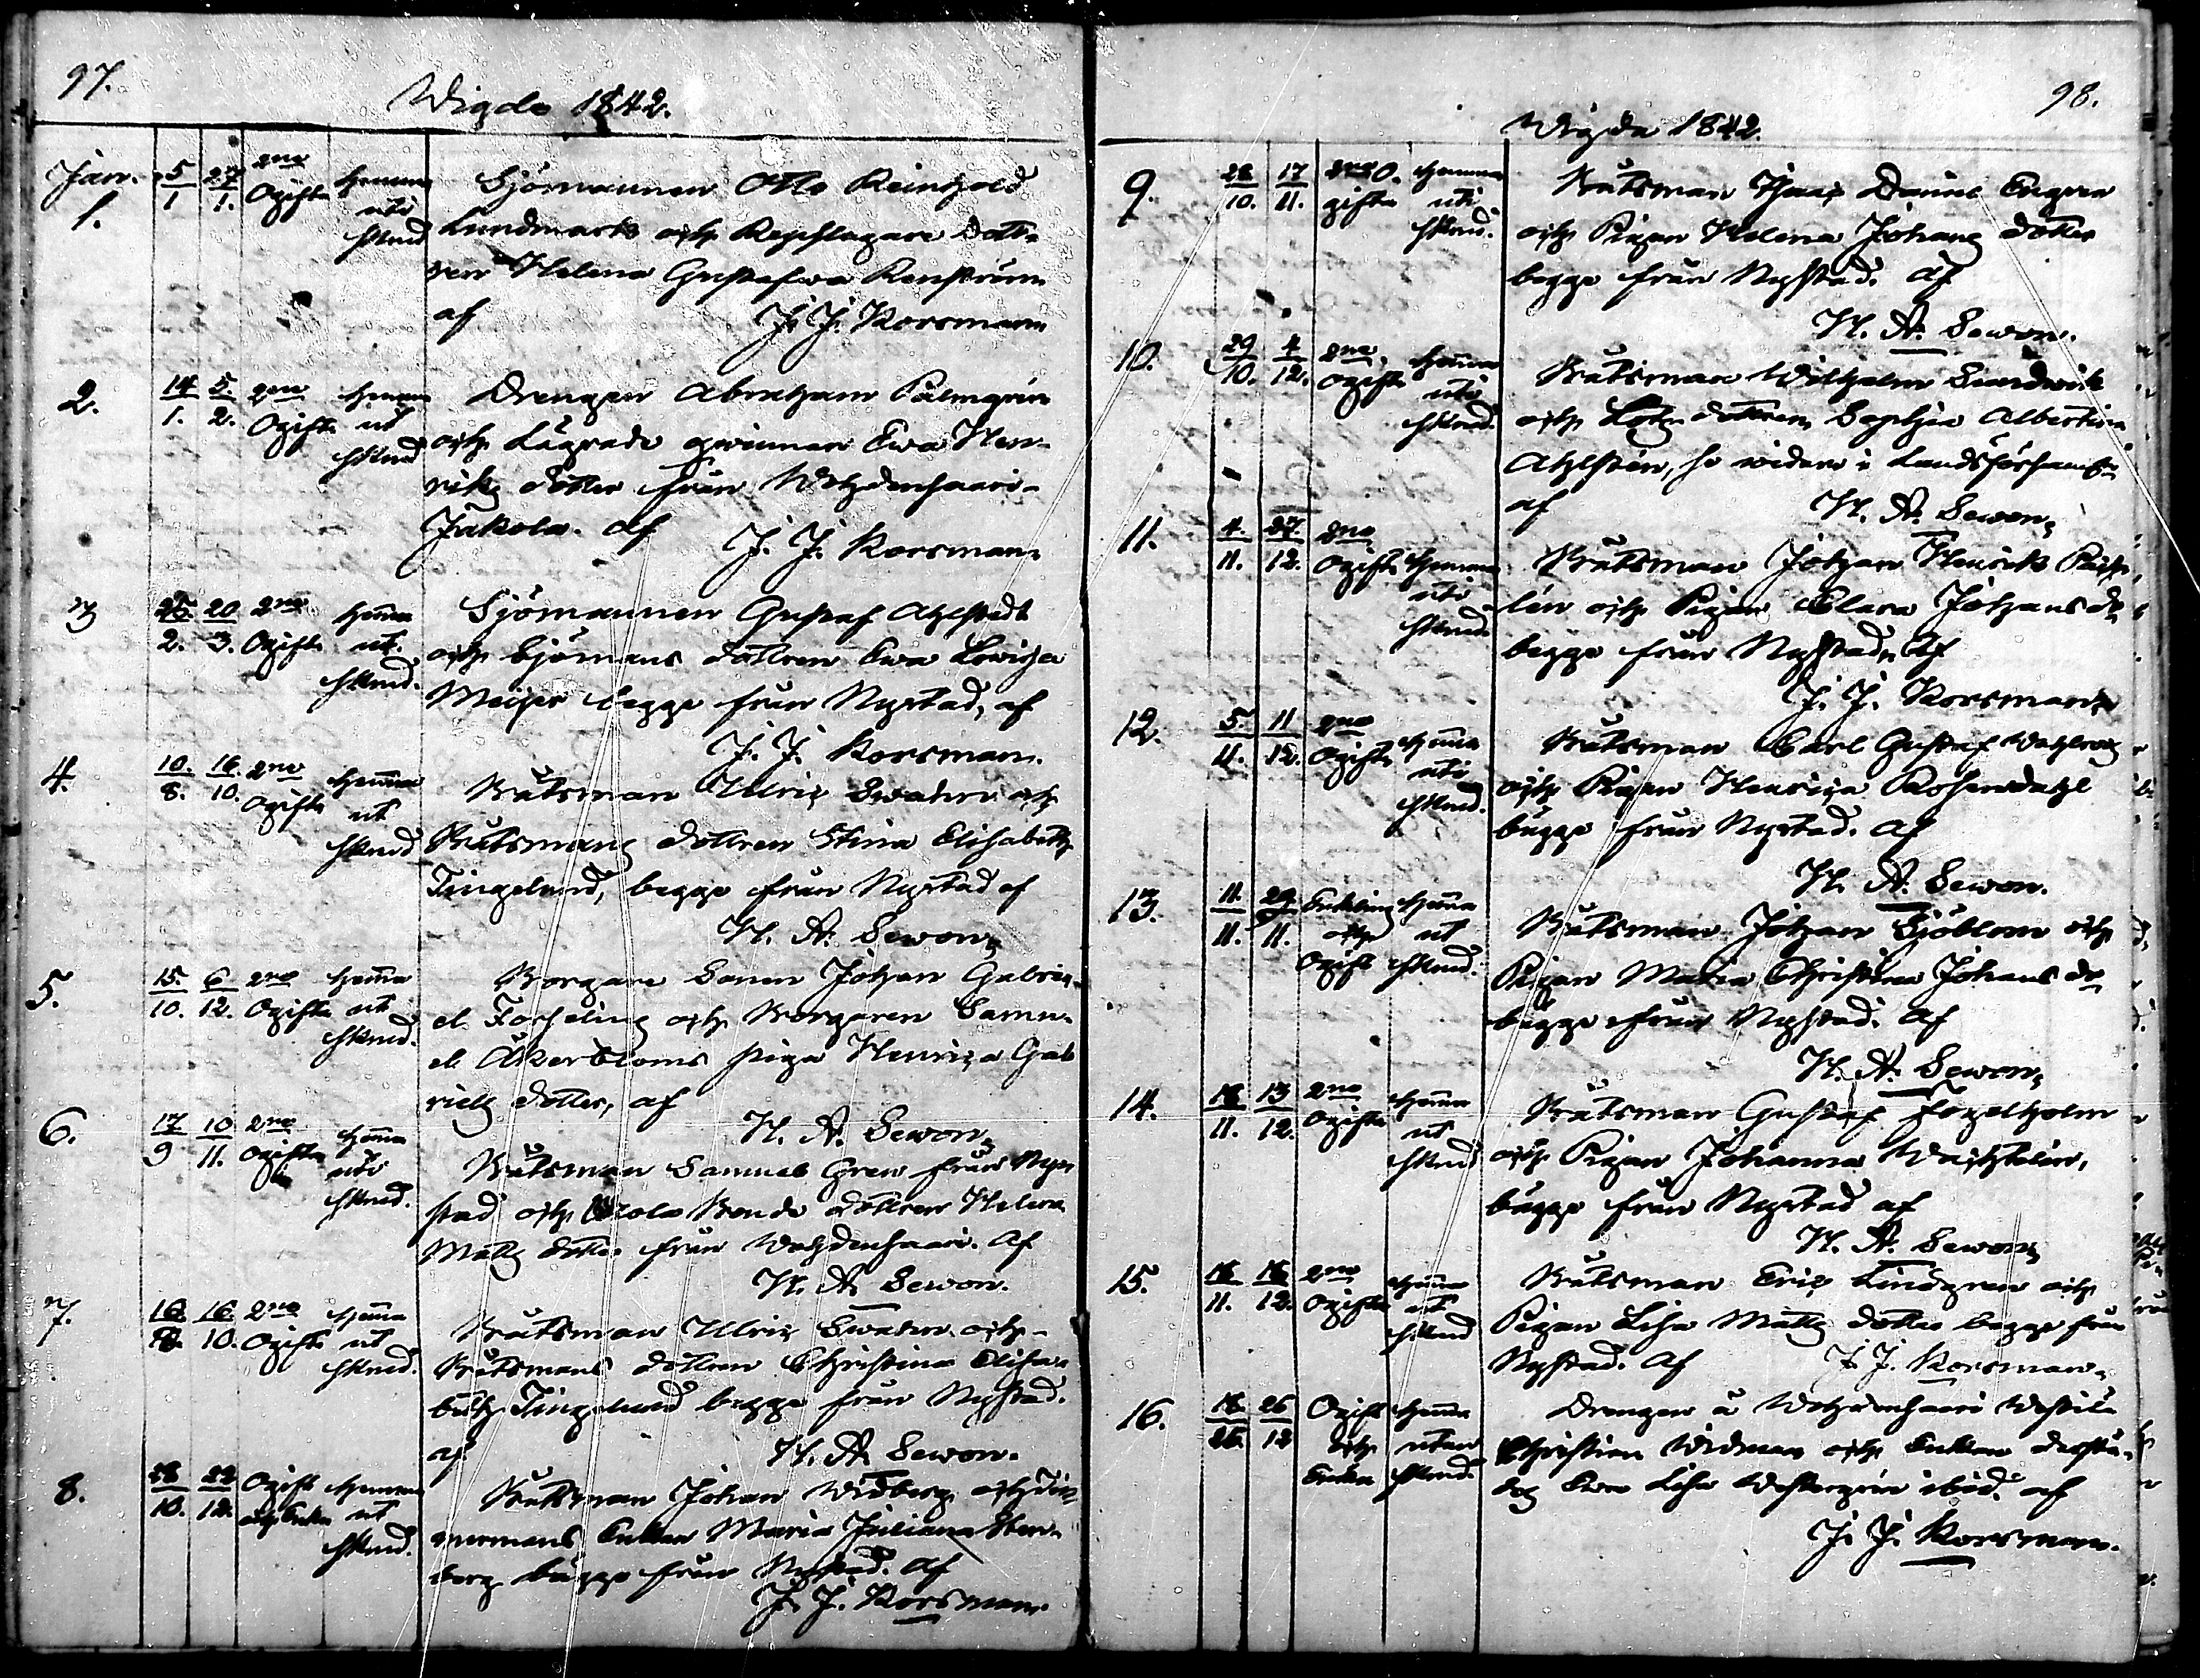 97.
Wigde 1842.
Jan. 1. 5/1 27/1. 2ne Ogifte hemma uti hkrad
Sjömannen Otto Reinhold
Lundmark och Repslagare dott-
ren Helena Gustafwa Renström
af J. J. Korsman
2. 14/1. 5/2. 2ne Ogifte hemma ut hkrad
Drengen Abraham Palmgrén
och Lägrade qwinnan Ewa Hen-
riks dotter från Wohdensaari
Jakola. af J. J. Korsman
3 25/2. 20/3. 2ne Ogifte hema ut. hkrad.
Sjömannen Gustaf Ahlstedt
och Sjömans dottren Ewa Lowisa
Meijer begge från Nystad, af
J. J. Korsman.
4. 10./8. 16./10. 2ne Ogifte hemma ut hkrad
Båtsman Ulric Swahn och
Båtsmans dottren Stina Elisabeth
Tingelund, begge från Nystad af
H. A. Sewon,
5. 15./10. 6/12. 2ne Ogifte hemma ut hkrad.
Borgare Sonen Johan Gabri-
el Forseling och Borgaren Samu-
el Åkerbloms piga Henrica Gab
riels dotter, af
H. A. Sewon,
6. 17/9 10/11. 2ne Ogifte hemma uti hkrad.
Båtsman Samuel Gren från Ny-
stad och Bonde dottren Helena
Matts dotter från Wohdensaari. Af
H. A. Sewon.
7. 10./8. 16./10. 2ne Ogifte hemma ut hkrad.
Båtsman Ulric Swahn och
Båtsmans dottren Christina Elisa-
beth Tingelund begge från Nystad.
af H. A. Sewon.
8. 28/10. 22/12. Ogift och Enka hemma ut hkrad.
Båtsman Johan Widberg och Tim-
mermans Enkan Maria Juliana Sten-
berg begge från Nystad. Af
J. J. Korsman.
98.
Wigda 1842.
9. 28/10. 17/11. 2ne O. gifte hemma uti hkrad.
Båtsman Isaac Daniel Engren
och Pigan Helena Johans dotter
begge från Nystad. af
H. A. Sewon.
10. 29/10. 4/12. 2ne. Ogifte hemma uti hkrad.
Båtsman Wilhelm Sundwik
och dottren Sophia Albertina
Ahlstén, se widare i Landsförsaml.
af H. A. Sewon,
11. 4./11. 27./12. 2ne Ogifte hemma uti hkrad
Båtsman Johan Henrik
lén och Pigan Clara Johans dr
begge från Nystad, Af
J. J. Korsman,
12. 5./11. 11/12. 2ne Ogifte hemma uti hkrad.
Båtsman Carl Gustaf
och Pigan Henrica Rosendahl
begge från Nystad. af
H. A. Sewon.
13. 11./11. 29./11. Enkling och Ogift hemma ut hkrad.
Båtsman Johan Sjöblom och
Pigan Maria Christina Johans dr
begge från Nystad. Af
H. A. Sewon,
14. 18/11. 13/12. 2ne Ogifte hemma ut hkrad
Båtsman Gustaf Fogelholm
och Pigan Johanna
begge från Nystad af
H. A. Sewon,
15. 18/11. 18/12. 2ne Ogifte hemma ut hkrad
Båtsman Eric Lindgren och
Pigan Lisa Matts dotter begge från
Nystad. Af J. J. Korsman.
16. 18./25. 26/12 Ogift och Enka hemma utan hkrad.
Drengen å Wohdensaari
Christian Widman och Enkan
Ewa Lisa Westergrén ibid. af
J. J. Korsman.